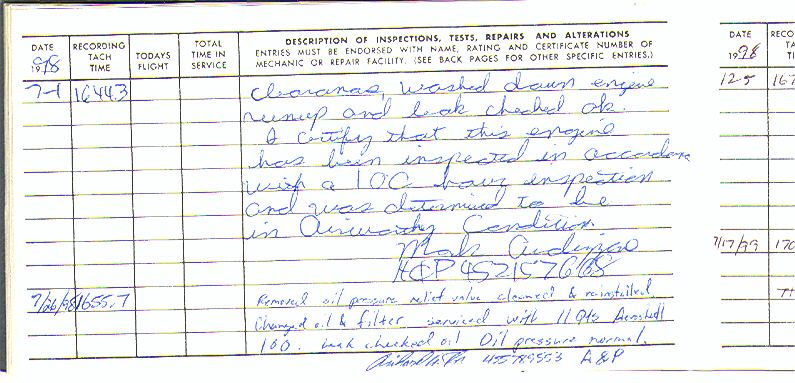 DATE
1998
RECORDING TACH TIME
TODAYS FLIGHT
TOTAL TIME IN SERVICE
DESCRIPTION OF INSPECTIONS, TESTS, REPAIRS AND ALTERATIONS
ENTRIES MUST BE ENDORSED WITH NAME, RATING AND CERTIFICATE NUMBER OF
MECHANIC OR REPAIR FACILITY. (SEE BACK PAGES FOR OTHER SPECIFIC ENTRIES.)
7-1 1644.3 washed down engine
runup and leak checked ok.
I certify that this engine
has been inspected in accordance
with a 100 hour inspection
and was determined to be
in Airworthy Condition.
Mark
A&P 452157668
7/26/98 1655.7 Removed oil pressure relief valve cleaned & reinstalled
Changed oil & filter serviced with 11 Qts Aeroshell
100. leak checked oil Oil pressure normal.
455789553 A&P
DATE
1998
RECO
TA
TI
12-5 167
7/17/99 170